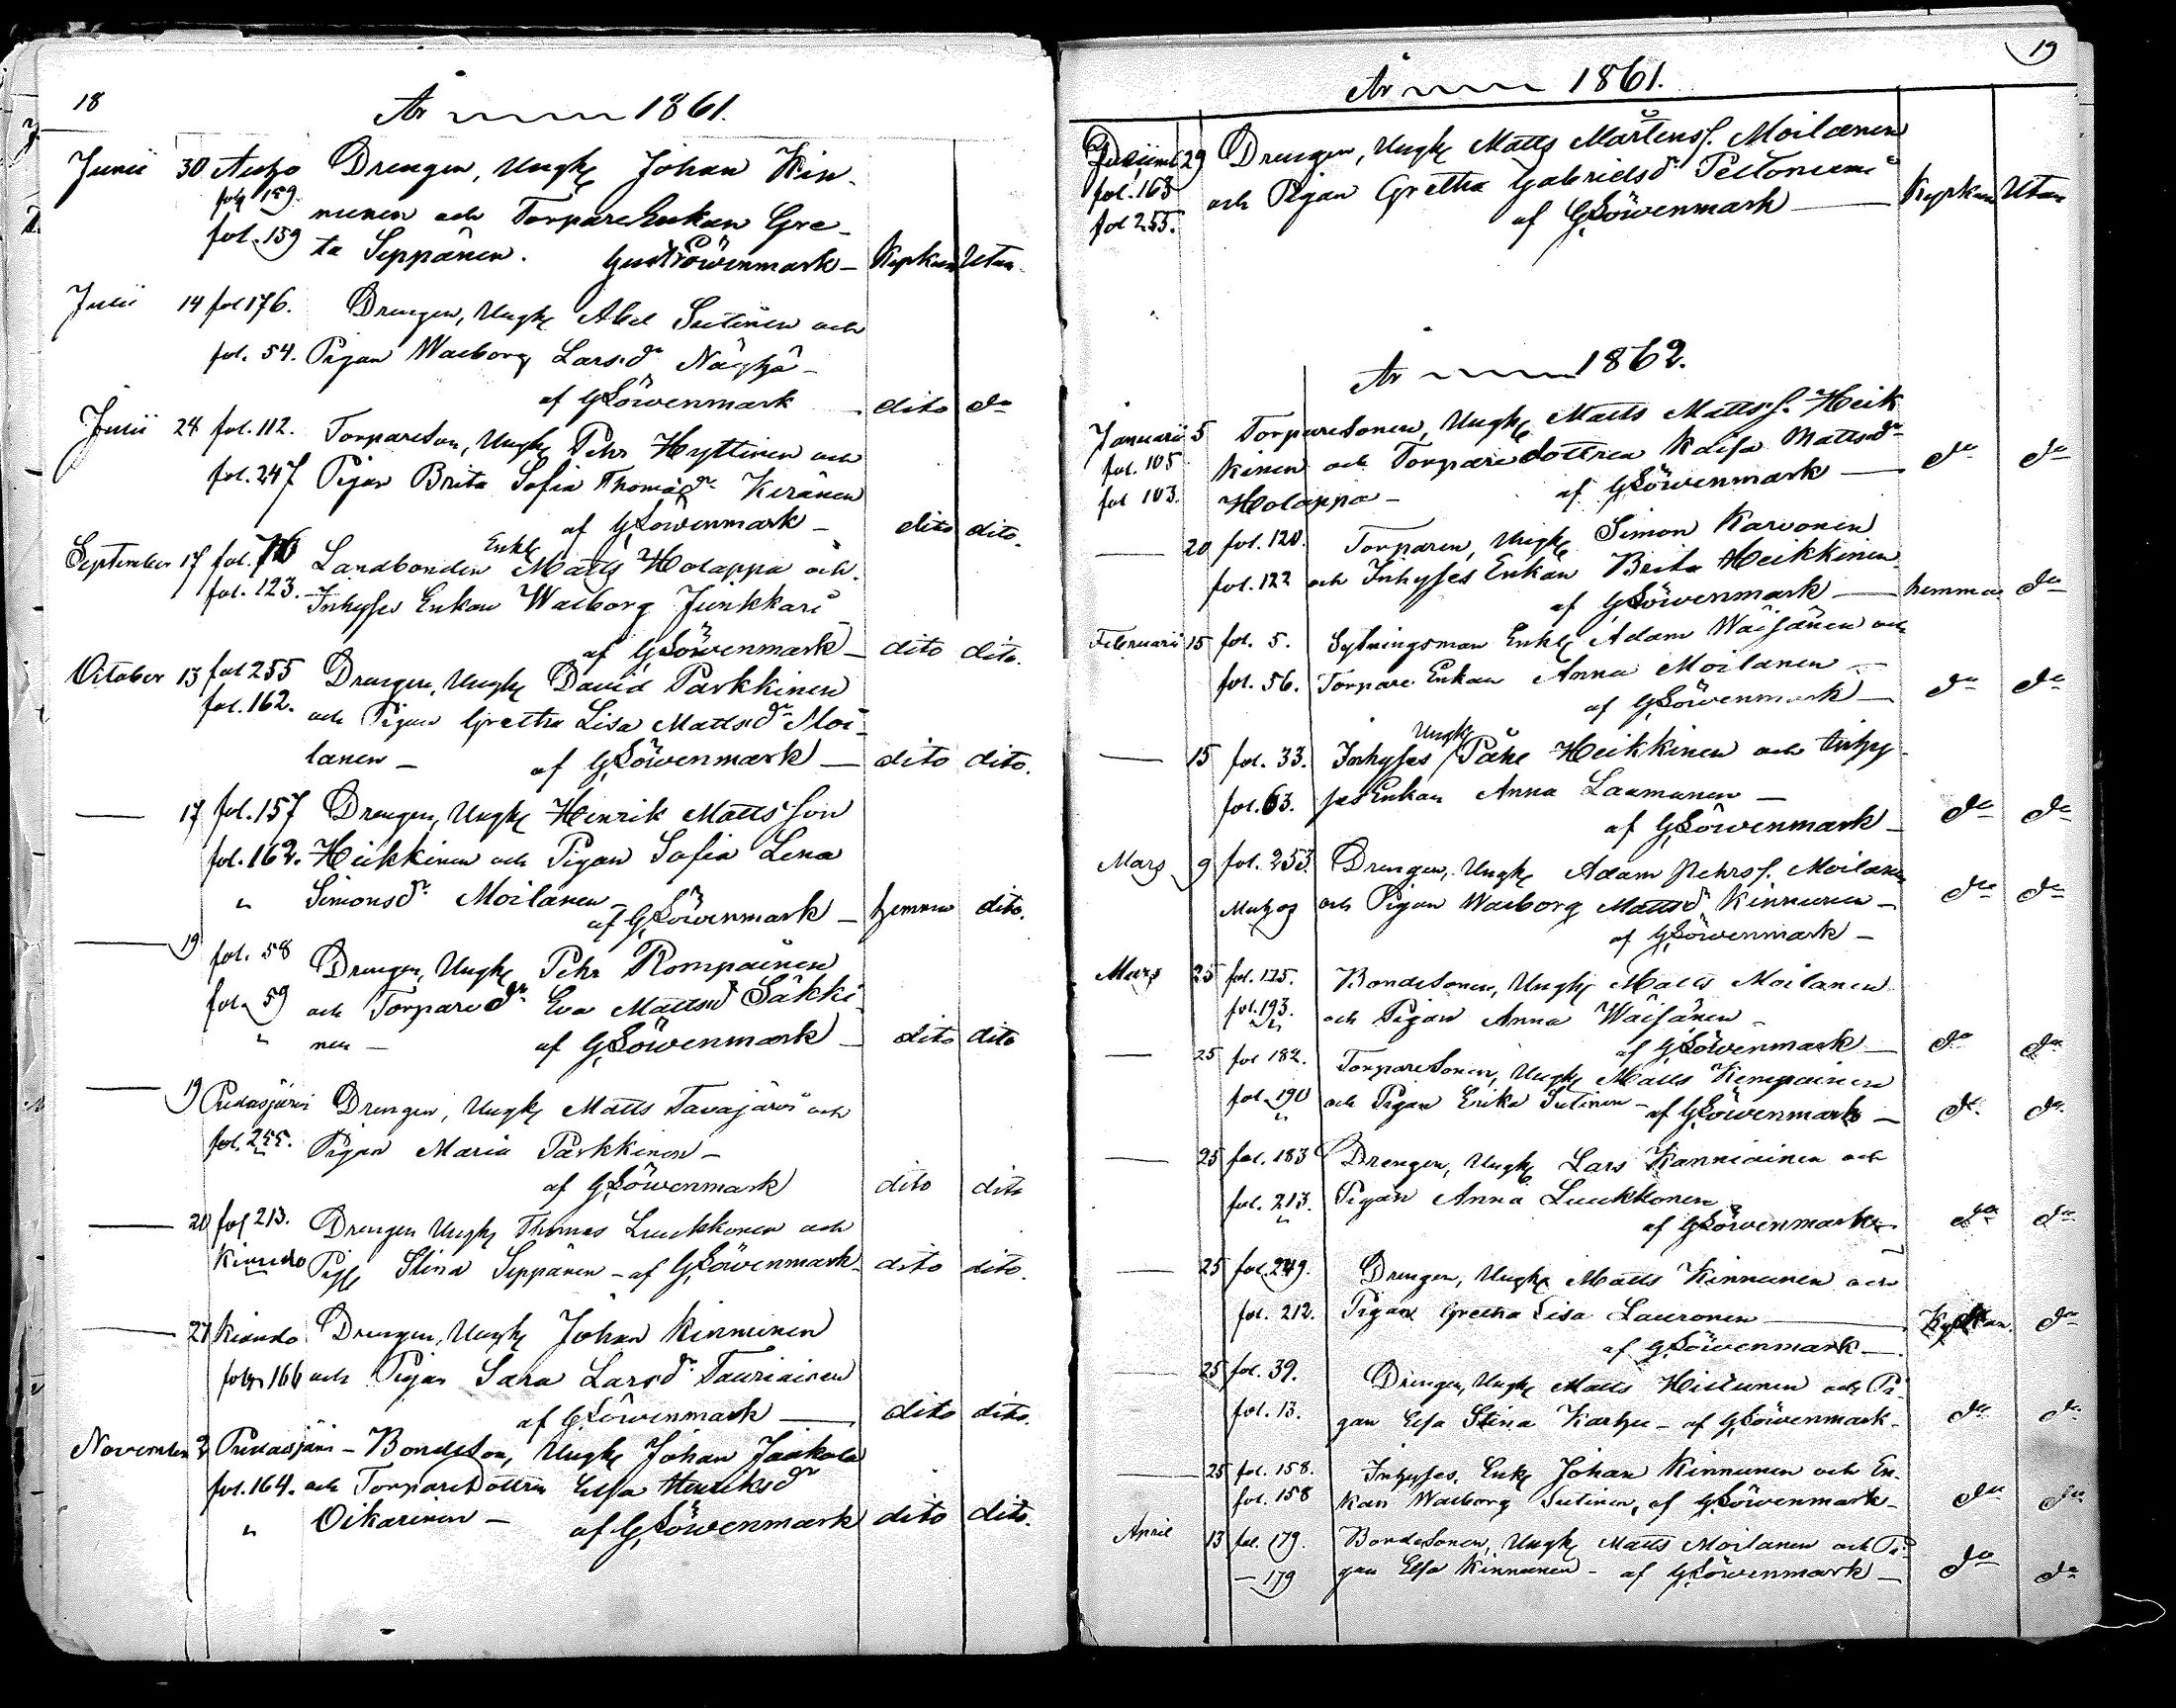 18
År 1861.
Junii 30 Drengen, Ungk Johan Kin-
fol. 159. nunen och TorpareEnkan Gre-
fol. 159 ta Seppänen. Gust Löwenmark - Kyrkan Utan
Julii 14 fol 176. Drengen, Ungk Abel Sutinen och
fol. 54. Pigan Walborg Larsdr
af GLöwenmark dito do
Julii 28 fol. 112. TorpareSon, Ungk Pehr Hyttinen och
fol. 247 Pigan Brita Sofia Thomasdr Keränen
af GLöwenmark - dito dito.
Enkl
September 17 fol. 76 Landbonden Matts Holappa och
fol. 123. Inhyses Enkan Walborg Junkkari
af GLöwenmark - dito dito.
October 13 fol 255 Drengen, Ungk David Parkkinen
fol. 162. och Pigan Gretha Lisa Mattsdr Moi-
lanen - af GLöwenmark - dito dito.
— 17 fol. 157 Drengen, Ungk Henrik Mattsson
fol. 162. Heikkinen och Pigan Sofia Lena
" Simonsdr Moilanen -
af GLöwenmark - hemma dito.
— 19 fol. 58 Drengen, Ungk Pehr Rompainen
fol. 59 och Torparedr Eva Mattsdr Säkki-
" nen - af GLöwenmark - dito dito
— 19 Pudasjärvi Drengen, Ungk Matts Tavajärvi och
fol. 255. Pigan Maria Parkkinen -
af GLöwenmark dito dito
— 20 fol 213. Drengen Ungk Thomas Luukkonen och
Kiando Stina Seppänen - af GLöwenmark - dito dito.
— 27 Kiando Drengen, Ungk Johan Kinnunen
fol. 166 och Pigan Sara Larsdr Tauriainen
af GLöwenmark — dito dito.
November 2 Pudasjärvi - BondeSon, Ungk Johan Jaakola
fol. 164. och TorpareDottren Elsa Henriksdr
" Oikarinen - af GLöwenmark dito dito.
19
År 1861.
29 Drengen, Ungk Matts Mårtenss. Moilanen
fol. 163 och Pigan Gretha Gabrielsdr Peltoniemi
fol 255. af GLöwenmark — Kyrkan Utan
År 1862.
Januarii 5 TorpareSonen, Ungk Matts Mattss. Heik
fol. 105 kinen och Torparedottren Kaisa Mattsdr
fol 103. Holappa - af GLöwenmark — do do
— 20 fol. 120. Torparen, Ungk Simon Karvonen
fol. 122 och Inhyses Enkan Brita Heikkinen
af GLöwenmark — hemma do
Februarii 15 fol. 5. Sytningsman Enkl Adam Wäisänen och
fol. 56. Torpare Enkan Anna Moilanen -
af GLöwenmark - do do
Ungk
— 15 fol. 33. Inhyses Påhl Heikkinen och Inhy-
fol. 63. ses Enkan Anna Laamanen -
af GLöwenmark - do do
Mars 9 fol. 253. Drengen, Ungk Adam Pehrss. Moilanen
och Pigan Walborg Mattsdr Kinnunen - do do
af GLöwenmark -
Mars 25 fol. 125. BondeSonen, Ungk Matts Moilanen
fol. 193. och Pigan Anna Wäisänen -
af GLöwenmark - do do
— 25 fol 182. TorpareSonen, Ungk Matts Kempainen
fol. 190 och Pigan Erika Sutinen - af GLöwenmark - do. do.
— 25 fol. 183 Drengen, Ungk Lars Kanniainen och
fol. 213. Pigan Anna Luukkonen
af GLöwenmark - do do
— 25 fol. 249. Drengen, Ungk Matts Kinnunen och
fol. 212. Pigan Gretha Lisa Lauronen — Kyrkan. do
af GLöwenmark -
— 25 fol. 39. Drengen, Ungk Matts Hiltunen och Pi-
fol. 13. gan Elsa Stina Karhu - af GLöwenmark - do do
— 25 fol. 158. Inhyses, Enkl Johan Kinnunen och En-
fol. 158 kan Walborg Sutinen, af GLöwenmark - do do
April 13 fol. 179. BondeSonen, Ungk Matts Moilanen och Pi-
— 179 gan Elsa Kinnunen - af GLöwenmark - do do